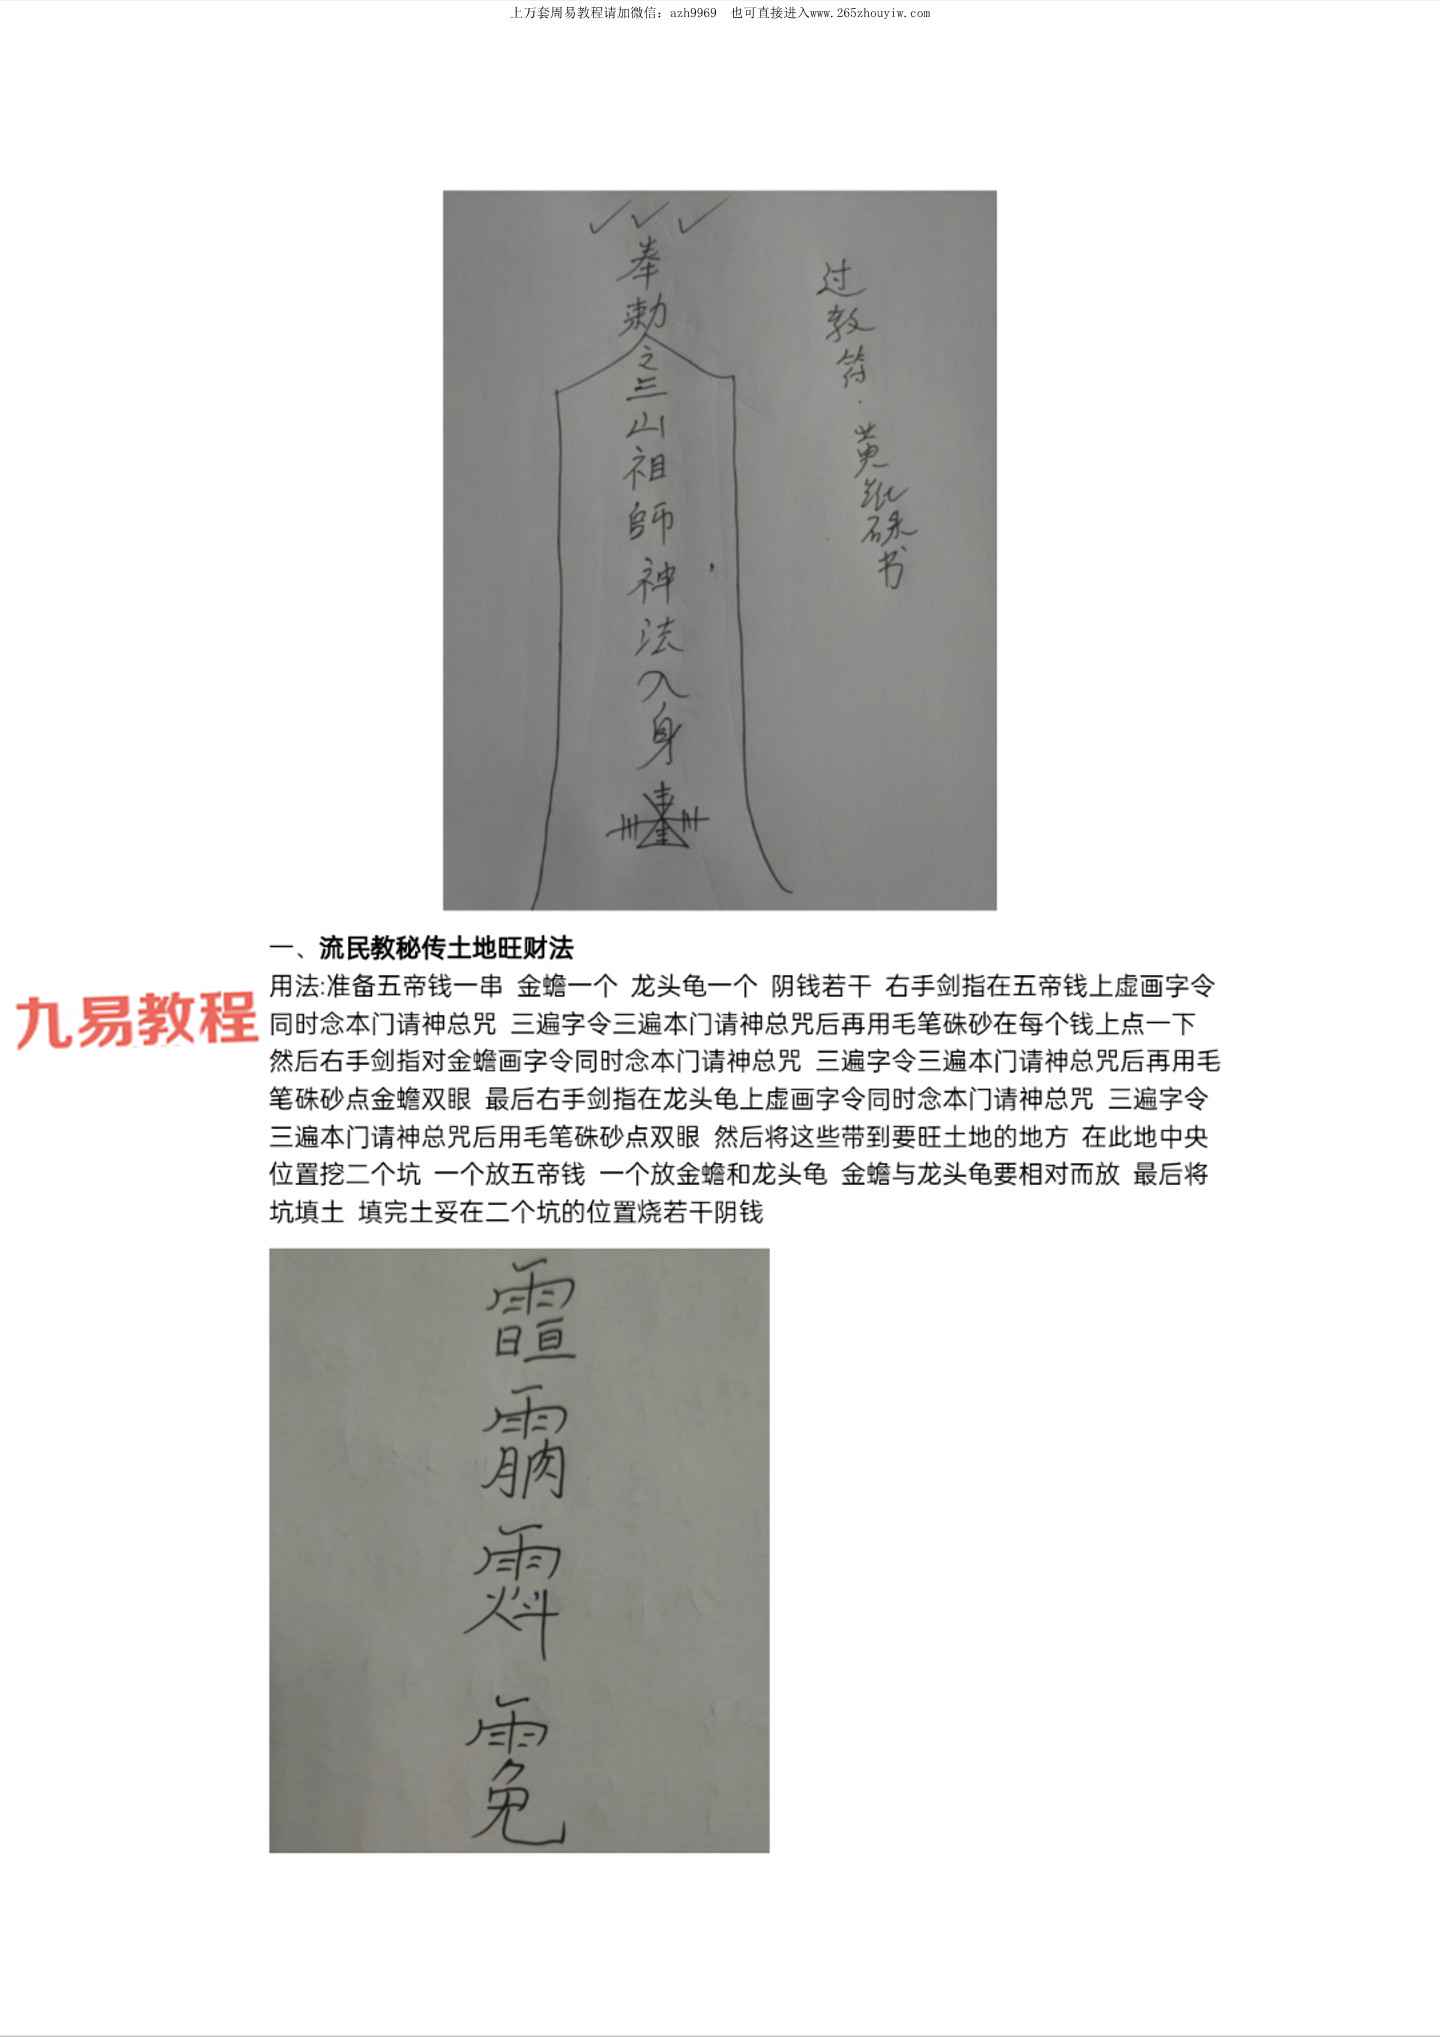 上万套周易教程请加微信：azh9969 也可直接进入www.265zhouyiw.com
奉勅之三山祖師神法入身
过教符·黄纸硃书
一、流民教秘传土地旺财法
用法:准备五帝钱一串 金蟾一个 龙头龟一个 阴钱若干 右手剑指在五帝钱上虚画字令
同时念本门请神总咒 三遍字令三遍本门请神总咒后再用毛笔硃砂在每个钱上点一下
然后右手剑指对金蟾画字令同时念本门请神总咒 三遍字令三遍本门请神总咒后再用毛
笔硃砂点金蟾双眼 最后右手剑指在龙头龟上虚画字令同时念本门请神总咒 三遍字令
三遍本门请神总咒后用毛笔硃砂点双眼 然后将这些带到要旺土地的地方 在此地中央
位置挖二个坑 一个放五帝钱 一个放金蟾和龙头龟 金蟾与龙头龟要相对而放 最后将
坑填土 填完土妥在二个坑的位置烧若干阴钱
九易教程